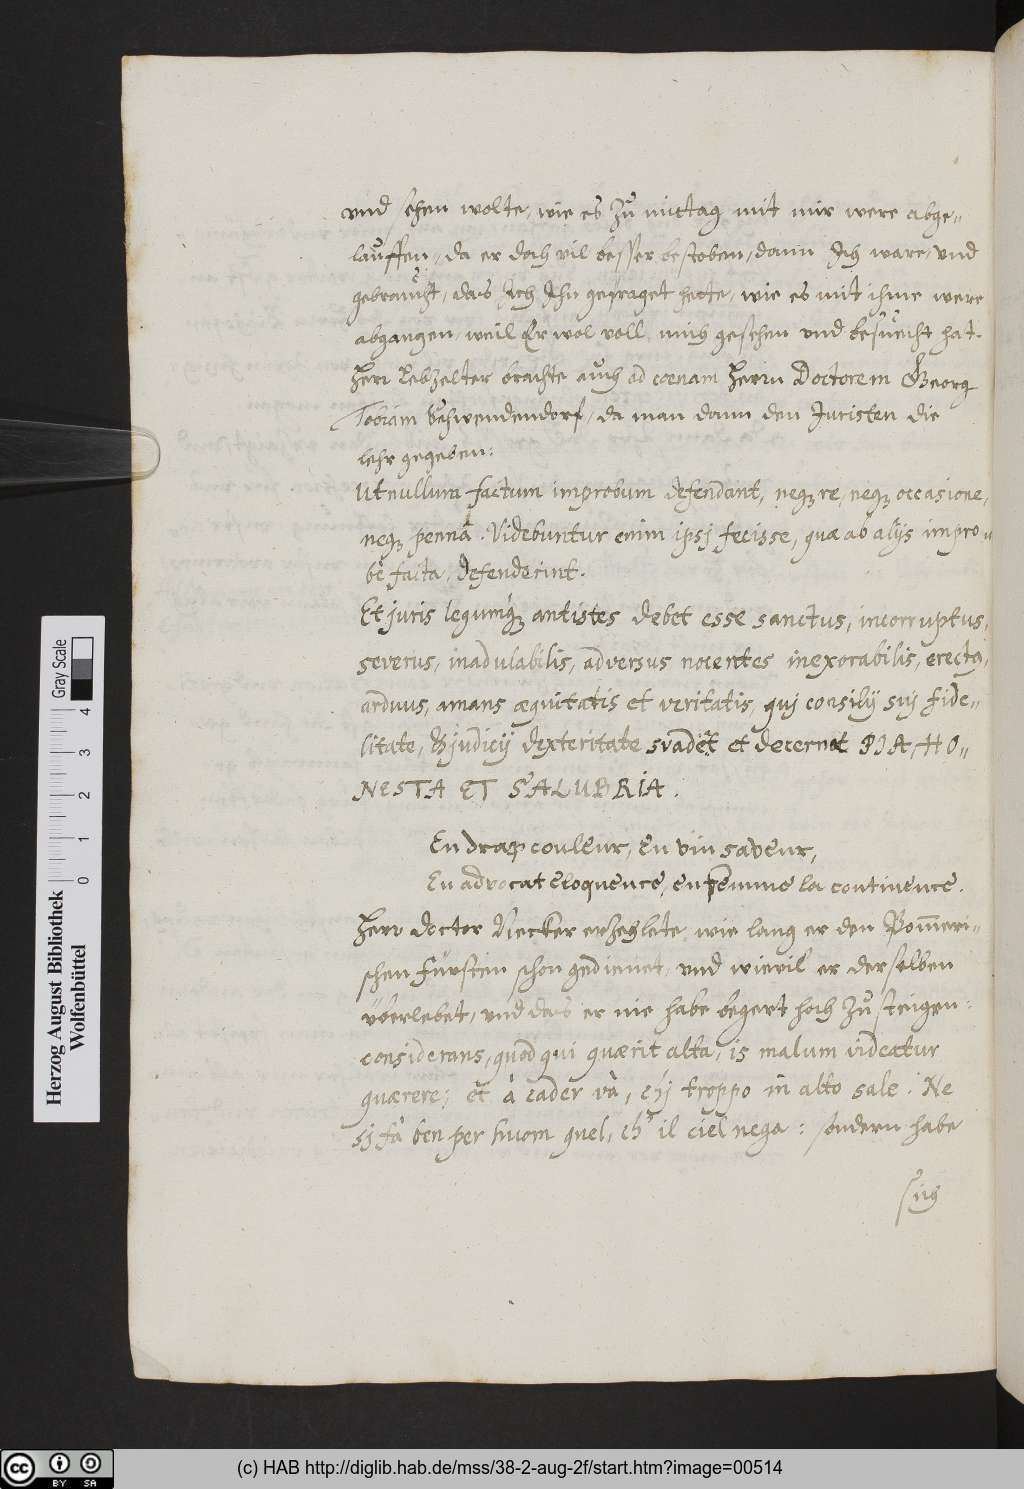 vnd sehen wolte, wie es zu mittag mit mir were abge-
lauffen, da er doch vil besser bestoben, dann Ich ware, vnd
gebraucht, das Ich Ihn gefraget hette, wie es mit ihme were
abgangen, weil Er wol voll mich gesehen vnd besuecht hat.
Herr Lebzelter brachte auch ad coenam Herrn Doctorem Georg
Tobiam Schwendendorf, da man dann den Juristen die
lehr gegeben:
Ut nullum factum improbum defendant, neq; re, neq; occasione,
neq; pennâ. Videbuntur enim ipsj fecisse, quae ab alijs impro-
bè facta, defenderint.
Et juris legumq́; antistes debet esse sanctus, incorruptus,
severus, inadulabilis, adversus nocentes inexorabilis, erecto,
arduus, amans aequitatis et veritatis, quj consilij suj fide-
litate, & judicij dexteritate svadet et decernat PIA, HO-
NESTA ET SALUBRIA.
En drap couleur, En vin saveur,
En advocat Eloquence, en femme la continence.
Herr Doctor Niecker erzehlete, wie lang er den Pom̄eri-
schen Fürsten schon gedienet, vnd wievil er derselben
vberlebet, vnd das er nie habe begert hoch zu steigen:
considerans, quod qui quaerit alta, is malum videatur
quaerere; et à cader và, chj troppo in alto sale. Ne
sj fà ben per huom quel, ch' il ciel nega: sondern habe
sich
Herzog August Bibliothek
Wolfenbüttel
0 1 2 3 4
Gray Scale
(c) HAB http://diglib.hab.de/mss/38-2-aug-2f/start.htm?image=00514
cc BY SA